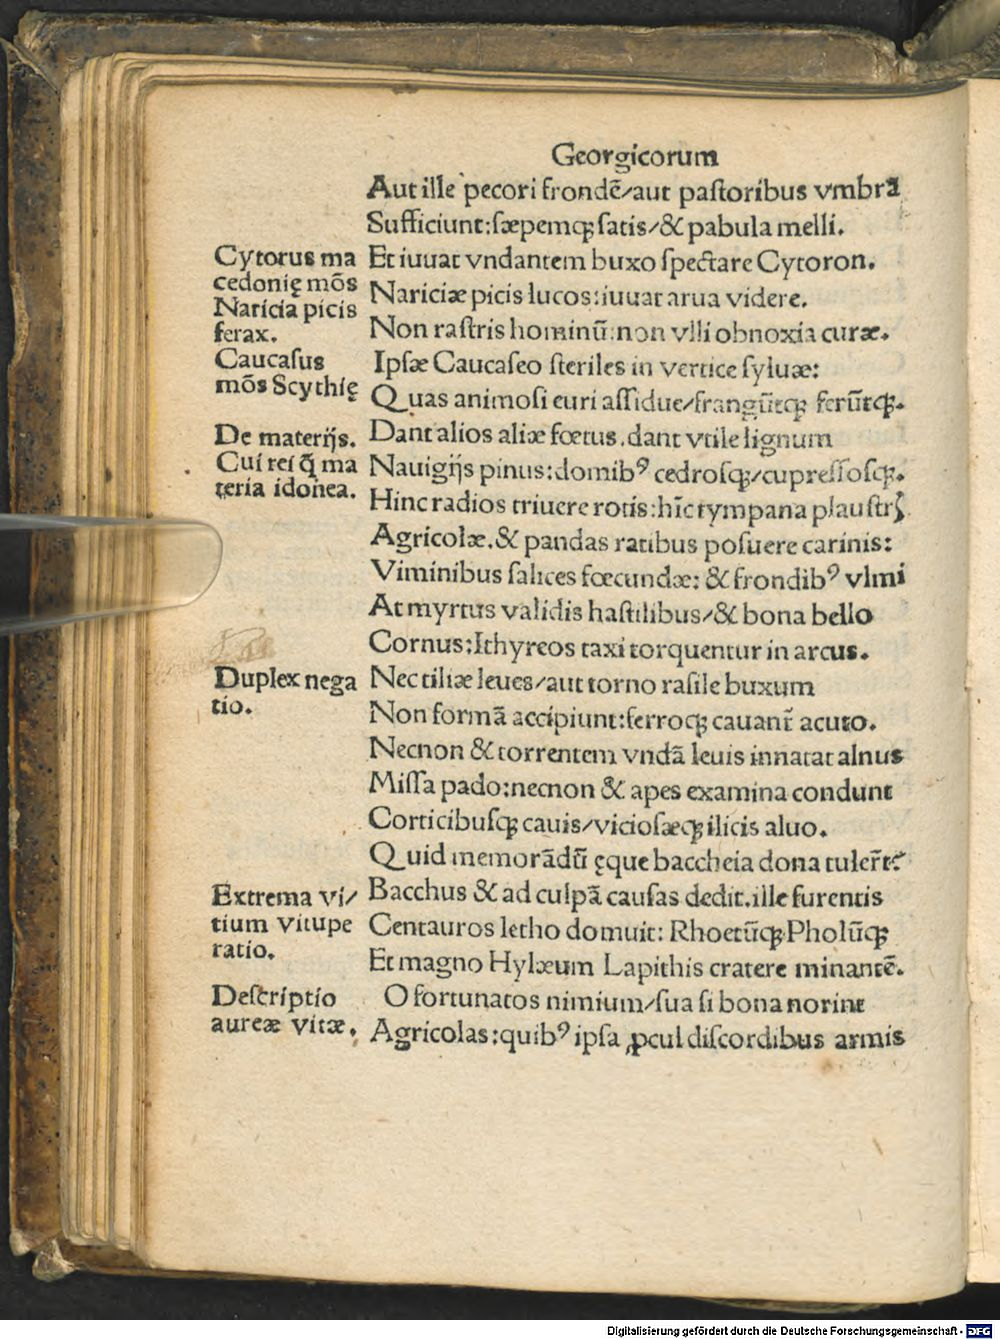 Georgicorum
Aut ille pecori frondē/aut paſtoribus vmbrā
Sufficiunt:ſæpemqꝫ ſatis/& pabula melli.
Cytorus ma
cedonię mōs
Naricia picis
ferax.
Et iuuat vndantem buxo ſpectare Cytoron.
Nariciæ picis lucos:iuuat arua videre.
Non raſtris hominū:non vlli obnoxia curæ.
Caucaſus
mōs Scythię
Ipſæ Caucaſeo ſteriles in vertice ſyluæ:
Quas animoſi euri aſſidue/frangūtqꝫ ferūtqꝫ.
De materijs.
Cui rei q̄ ma
teria idonea.
Dant alios aliæ fœtus.dant vtile lignum
Nauigijs pinus:domibꝰ cedroſqꝫ/cupreſſoſqꝫ.
Hinc radios triuere rotis:hīc tympana plauſtrꝭ
Agricolæ.& pandas ratibus poſuere carinis:
Viminibus ſalices fœcundæ: & frondibꝰ vlmi
At myrtus validis haſtilibus/& bona bello
Cornus:Ithyreos taxi torquentur in arcus.
Duplex nega
tio.
Nec tiliæ leues/aut torno raſile buxum
Non formā accipiunt:ferroqꝫ cauant̄ acuto.
Necnon & torrentem vndā leuis innatat alnus
Miſſa pado:necnon & apes examina condunt
Corticibuſqꝫ cauis/vicioſæqꝫ ilicis aluo.
Quid memorādū ęque baccheia dona tuler̄t?
Extrema vi/
tium vitupe
ratio.
Bacchus & ad culpā cauſas dedit.ille furentis
Centauros letho domuit: Rhoetūqꝫ Pholūqꝫ
Et magno Hylæum Lapithis cratere minantē.
Deſcriptio
aureæ vitæ.
O fortunatos nimium/ſua ſi bona norint
Agricolas:quibꝰ ipſa ꝓcul diſcordibus armis
Digitalisierung gefördert durch die Deutsche Forschungsgemeinschaft - DFG